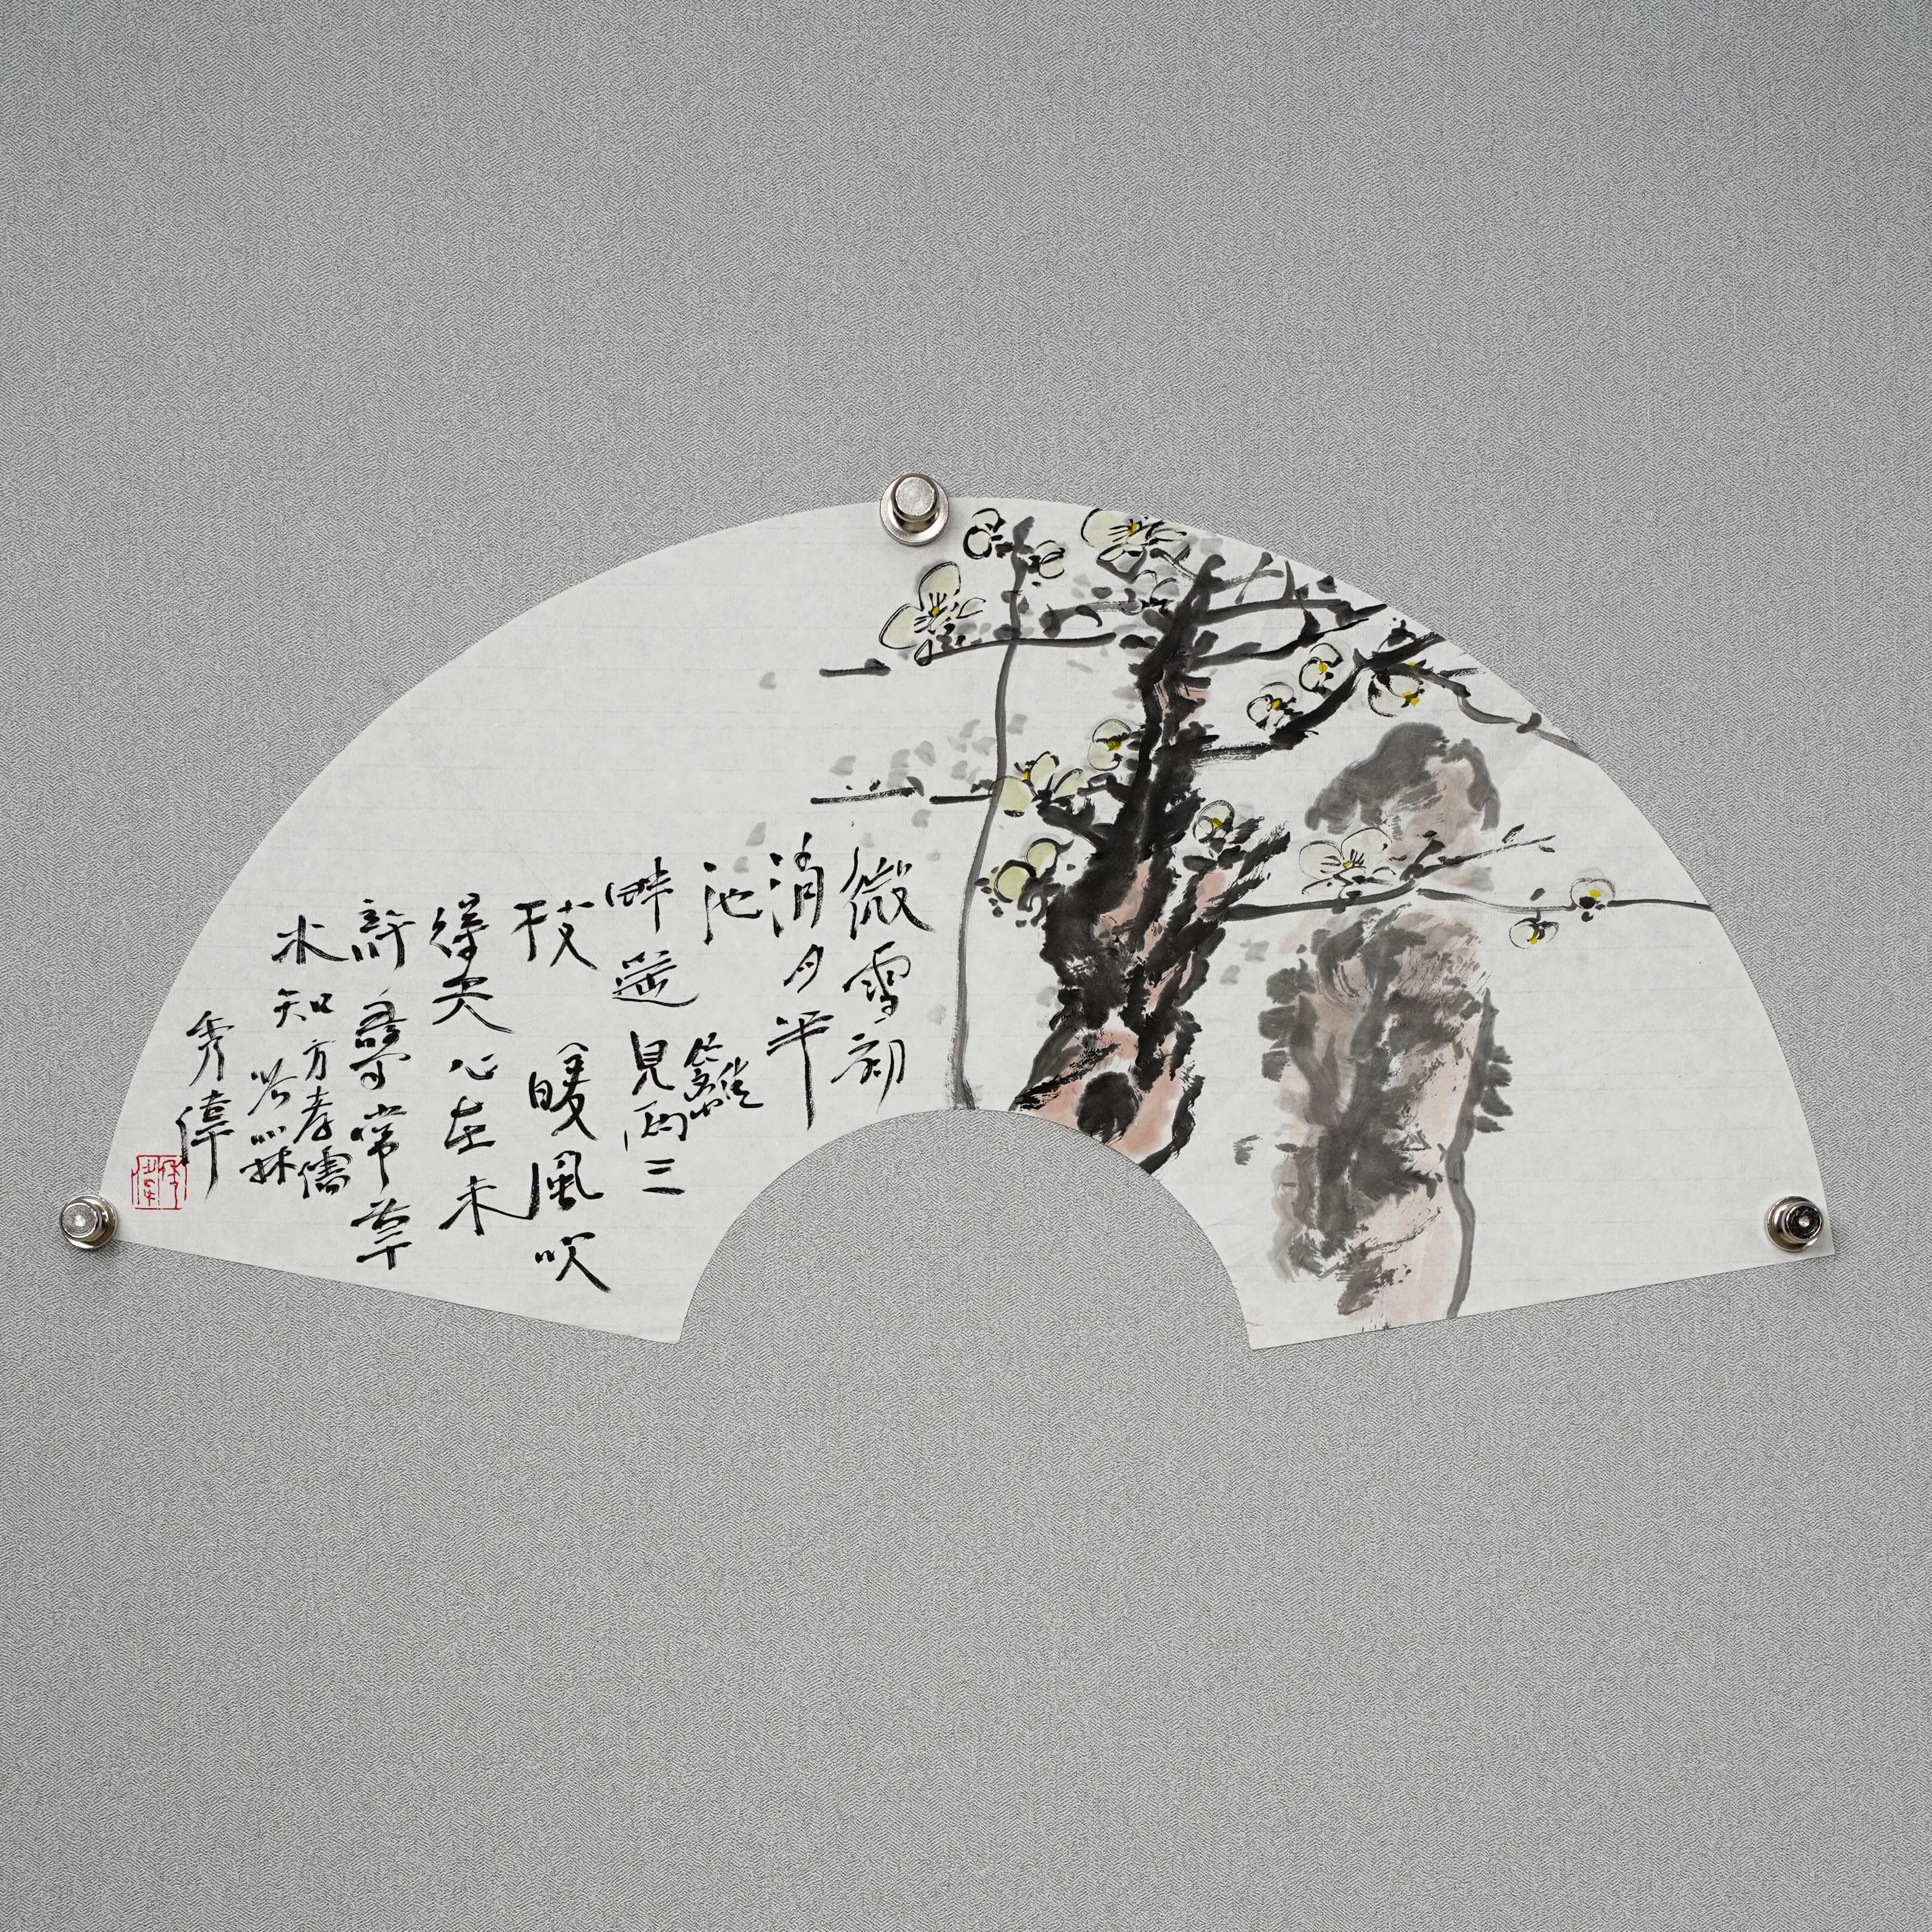 微雪初
消月半
池籬
畔遥見兩三
枝暖風吹
得天心在未
許尋常草
木知
方孝儒
林
秀偉